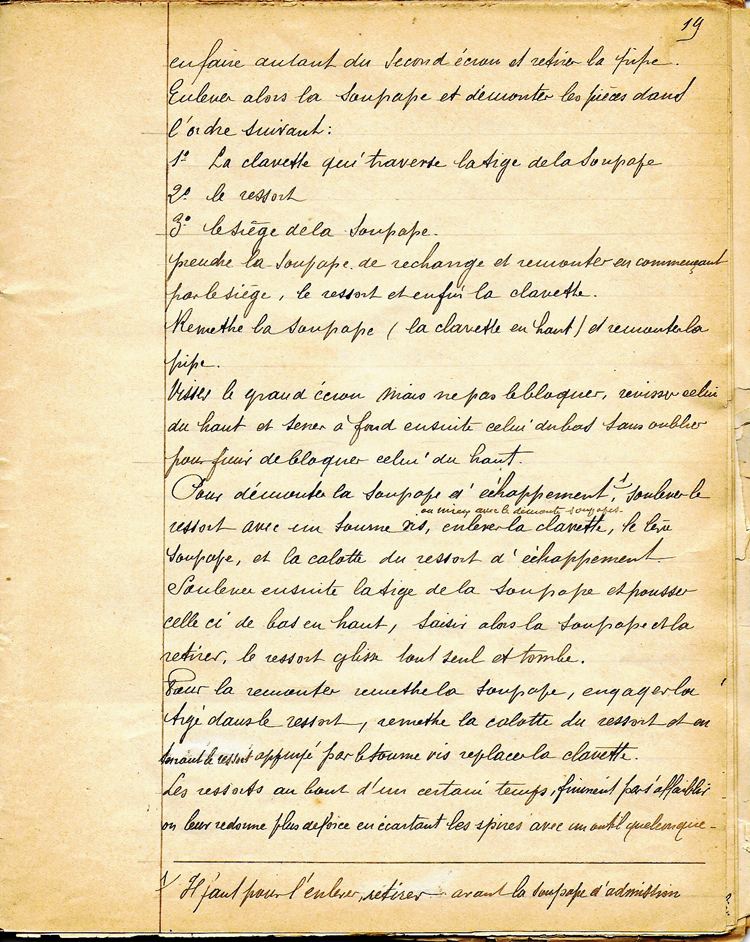 19
en faire autant du second écrou et retirer la pipe.
Enlever alors la soupape et démonter les pièces dans
l'ordre suivant:
1º La clavette qui traverse la tige de la soupape
2º le ressort
3º le siège de la soupape.
prendre la soupape de rechange et remonter en commençant
par le siège, le ressort et enfin la clavette.
Remettre la soupape (la clavette en haut) et remonter la
pipe.
Visser le grand écrou mais ne pas le bloquer, revisser celui
du haut et serrer à fond ensuite celui du bas sans oublier
pour finir de bloquer celui du haut.
Pour démonter la soupape d'échappement, 1/ soulever le
ou mieux avec le démonte soupapes.
ressort avec un tourne vis, enlever la clavette, le lève
soupape, et la calotte du ressort d'échappement.
Soulever ensuite la tige de la soupape et pousser
celle ci de bas en haut, saisir alors la soupape et la
retirer, le ressort glisse tout seul et tombe.
Pour la remonter remettre la soupape, engager la
tige dans le ressort, remettre la calotte du ressort et en
tenant le ressort appuyé par le tourne vis replacer la clavette.
Les ressorts au bout d'un certain temps, finissent par s'affaiblir
on leur redonne plus de force en écartant les spires avec un outil quelconque-
1/ Il faut pour l'enlever, retirer avant la soupape d'admission